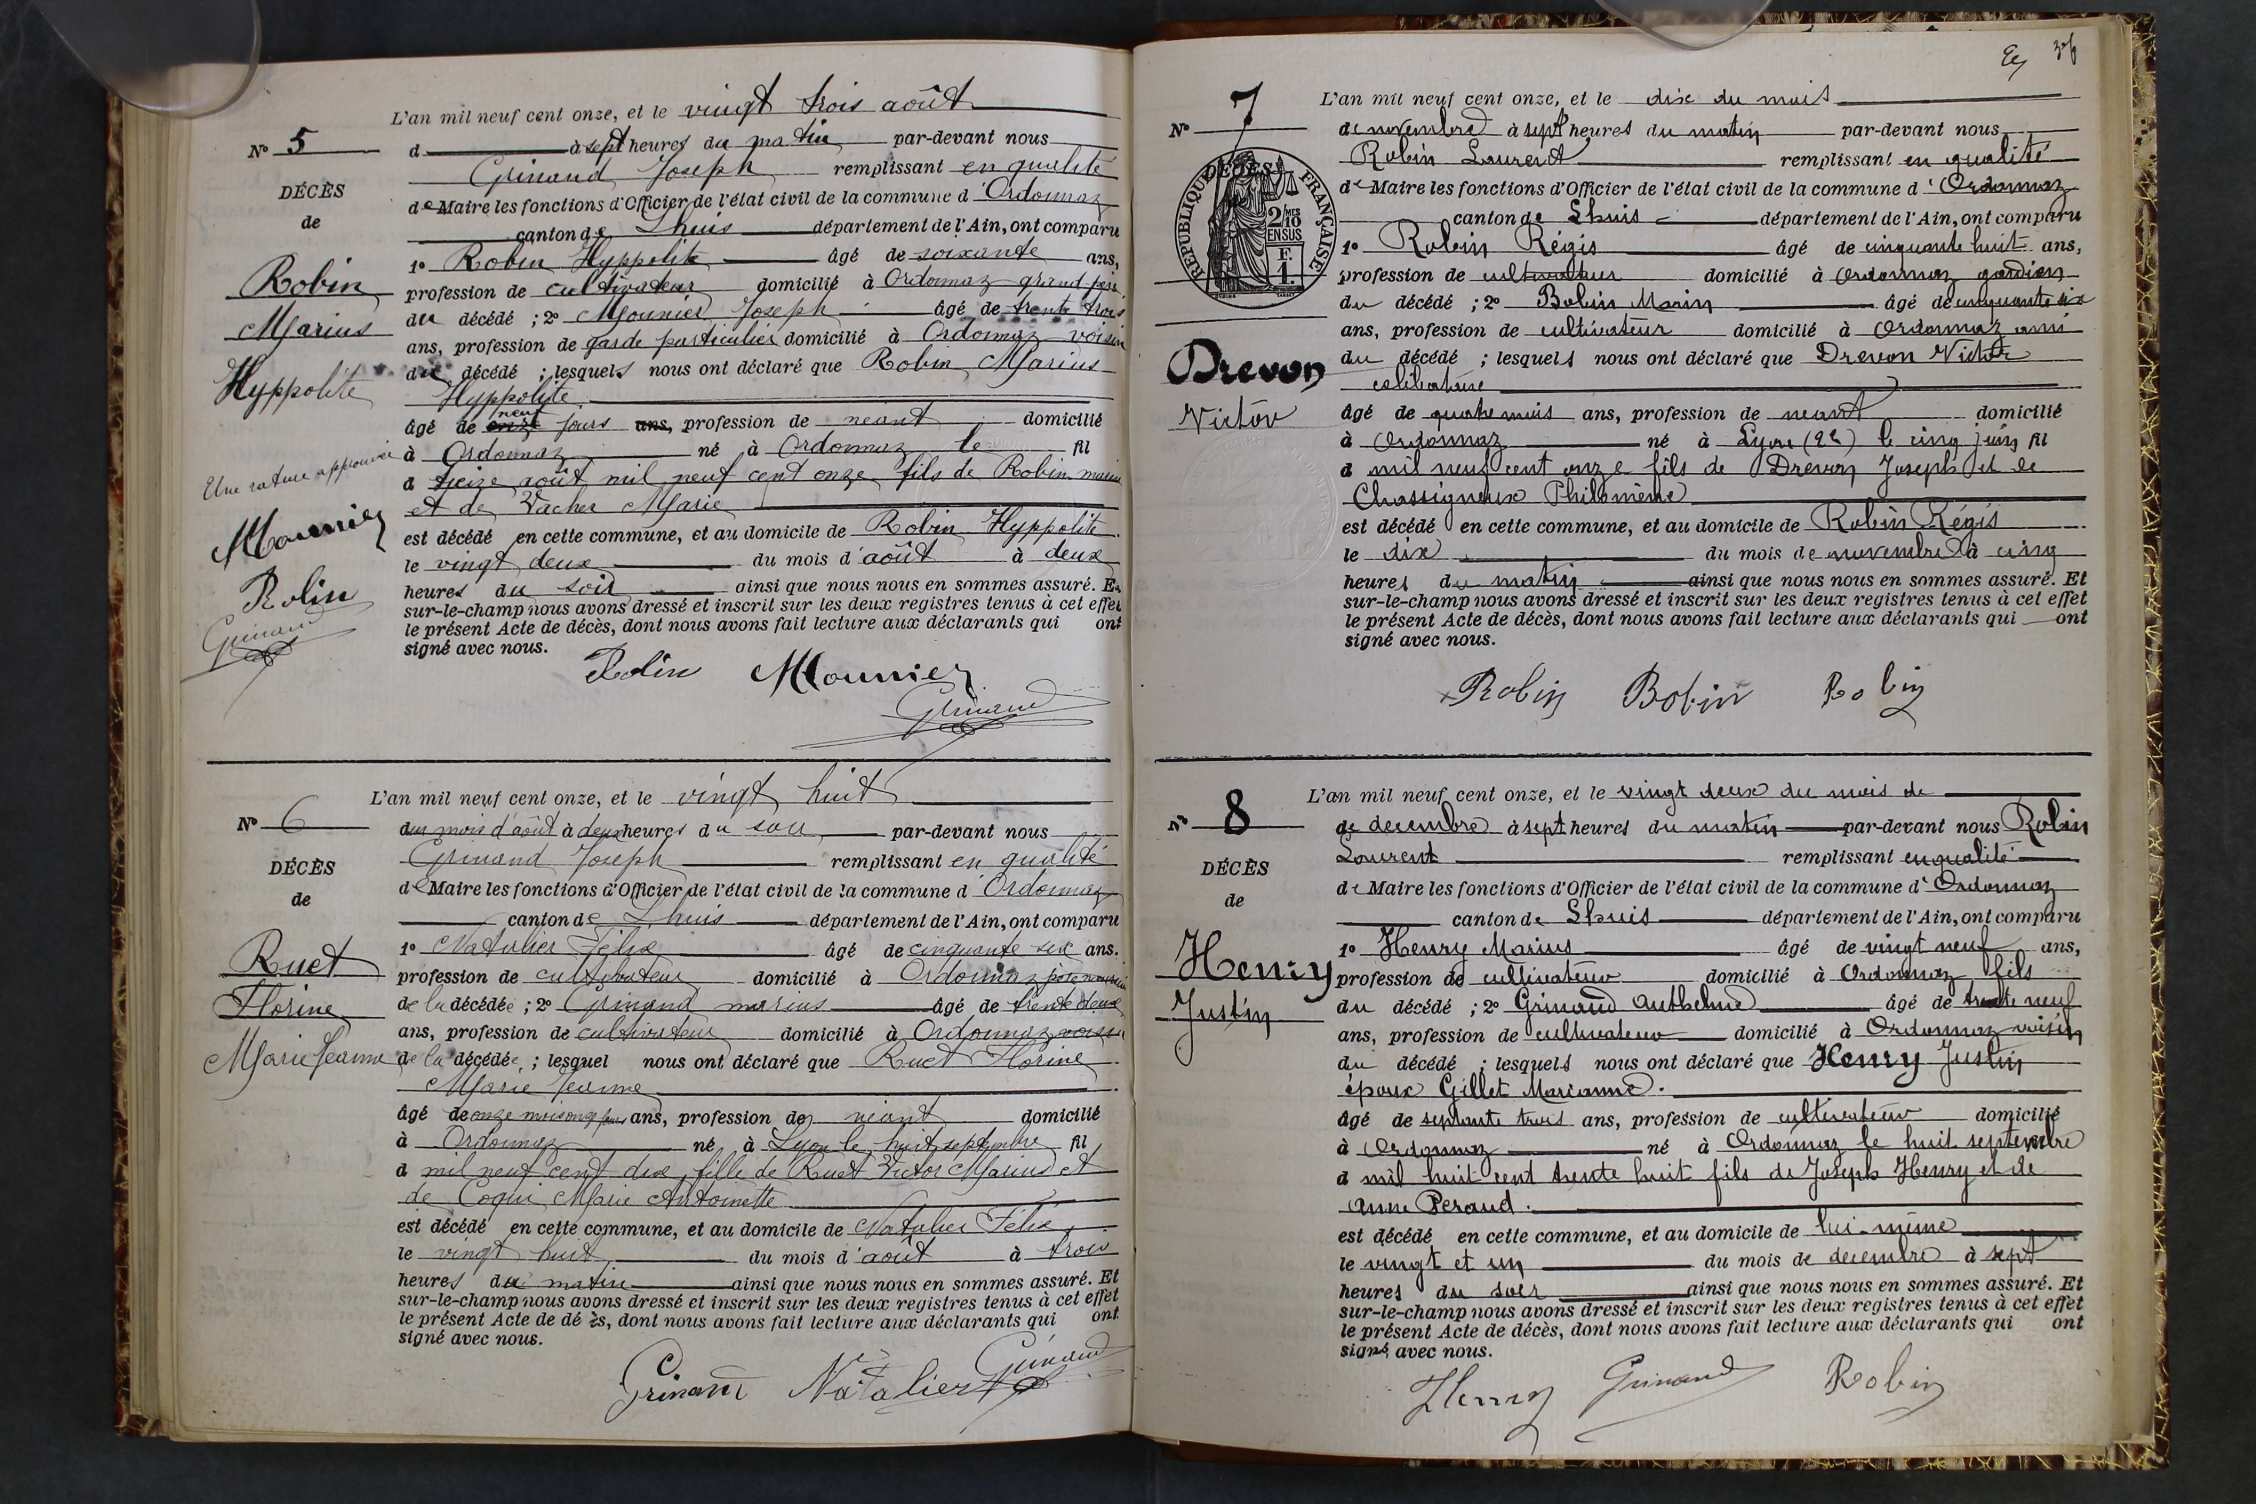 L'an mil neuf cent onze, et le vingt trois août
No 5
d à sept heures du matin par-devant nous
Grinand Joseph remplissant en qualité
DÉCÈS
de Maire les fonctions d'Officier de l'état civil de la commune d'Ordonnaz
de
canton de Lhuis département de l'Ain, ont comparu
1o Robin Hyppolite âgé de soixante ans,
Robin
profession de cultivateur domicilié à Ordonnaz grand père
Marius
du décédé ; 2o Mounier Joseph âgé de trente trois
ans, profession de garde particulier domicilié à Ordonnaz voisin
Hyppolite
du décédé ; lesquels nous ont déclaré que Robin Marius
Hyppolite
neuf
âgé de onze jours ans, profession de néant domicilié
Une rature approuvée
à Ordonnaz né à Ordonnaz le fil
d treize août mil neuf cent onze fils de Robin marius
et de Vacher Marie
Mounier
est décédé en cette commune, et au domicile de Robin Hyppolite
le vingt deux du mois d'août à deux
Robin
heures du soir ainsi que nous nous en sommes assuré. Et
sur-le-champ nous avons dressé et inscrit sur les deux registres tenus à cet effet
Grinand
le présent Acte de décès, dont nous avons fait lecture aux déclarants qui ont
signé avec nous.
Robin Mounier
Grinand
L'an mil neuf cent onze, et le vingt huit
No 6
du mois d'août à deux heures du soir par-devant nous
Grinand Joseph remplissant en qualité
DÉCÈS
de Maire les fonctions d'Officier de l'état civil de la commune d'Ordonnaz
de
canton de Lhuis département de l'Ain, ont comparu
1o Natalier Félix âgé de cinquante six ans.
Ruet
profession de cultivateur domicilié à Ordonnaz père nourricier
Florine
de la décédée ; 2o Grinand marius âgé de trente deux
ans, profession de cultivateur domicilié à Ordonnaz voisin
Marie Jeanne
de la décédée, ; lesquel nous ont déclaré que Ruet Florine
Marie Jeanne
âgé de onze mois onze jours ans, profession de néant domicilié
à Ordonnaz né à Lyon le huit septembre fil
d mil neuf cent dix, fille de Ruet Victor Marius et
de Coqui Marie Antoinette
est décédé en cette commune, et au domicile de Natalier Félix
le vingt huit du mois d'août à trois
heures du matin ainsi que nous nous en sommes assuré. Et
sur-le-champ nous avons dressé et inscrit sur les deux registres tenus à cet effet
le présent Acte de dé ès, dont nous avons fait lecture aux déclarants qui ont
signé avec nous.
Grinand Natalier Grinand
L'an mil neuf cent onze, et le dix du mois
No 7
de novembre à sept heures du matin par-devant nous
Robin Laurent remplissant en qualité
DÉCÈS
RÉPUBLIQUE FRANÇAISE
2/10 MES
EN SUS
F. 1.
de Maire les fonctions d'Officier de l'état civil de la commune d'Ordonnaz
canton de Lhuis département de l'Ain, ont comparu
1o Robin Régis âgé de cinquante huit ans,
profession de cultivateur domicilié à Ordonnaz gardien
du décédé ; 2o Bobin Marin âgé de cinquante six
ans, profession de cultivateur domicilié à Ordonnaz ami
Drevon
du décédé ; lesquels nous ont déclaré que Drevon Victor
célibataire
Victor
âgé de quatre mois ans, profession de neant domicilié
à Ordonnaz né à Lyon (2e) le cinq juin fil
d mil neuf cent onze fils de Drevon Joseph et de
Chassigneux Philomène
est décédé en cette commune, et au domicile de Robin Régis
le dix du mois de novembre à cinq
heures du matin ainsi que nous nous en sommes assuré. Et
sur-le-champ nous avons dressé et inscrit sur les deux registres tenus à cet effet
le présent Acte de décès, dont nous avons fait lecture aux déclarants qui ont
signé avec nous.
Robin Bobin Robin
L'an mil neuf cent onze, et le vingt deux du mois de
No 8
de decembre à sept heures du matin par-devant nous Robin
Laurent remplissant en qualité
DÉCÈS
de Maire les fonctions d'Officier de l'état civil de la commune d'Ordonnaz
de
canton de Lhuis département de l'Ain, ont comparu
1o Henry Marius âgé de vingt neuf ans,
Henry
profession de cultivateur domicilié à Ordonnaz fils
Justin
du décédé ; 2o Grinand Anthelme âgé de trente neuf
ans, profession de cultivateur domicilié à Ordonnaz voisin
du décédé ; lesquels nous ont déclaré que Henry Justin
époux Gillet Marianne.
âgé de septante trois ans, profession de cultivateur domicilié
à Ordonnaz né à Ordonnaz le huit septembre
d mil huit cent trente huit fils de Joseph Henry et de
Anne Peraud.
est décédé en cette commune, et au domicile de lui-même
le vingt et un du mois de decembre à sept
heures du soir ainsi que nous nous en sommes assuré. Et
sur-le-champ nous avons dressé et inscrit sur les deux registres tenus à cet effet
le présent Acte de décès, dont nous avons fait lecture aux déclarants qui ont
signé avec nous.
Henry Grinand Robin